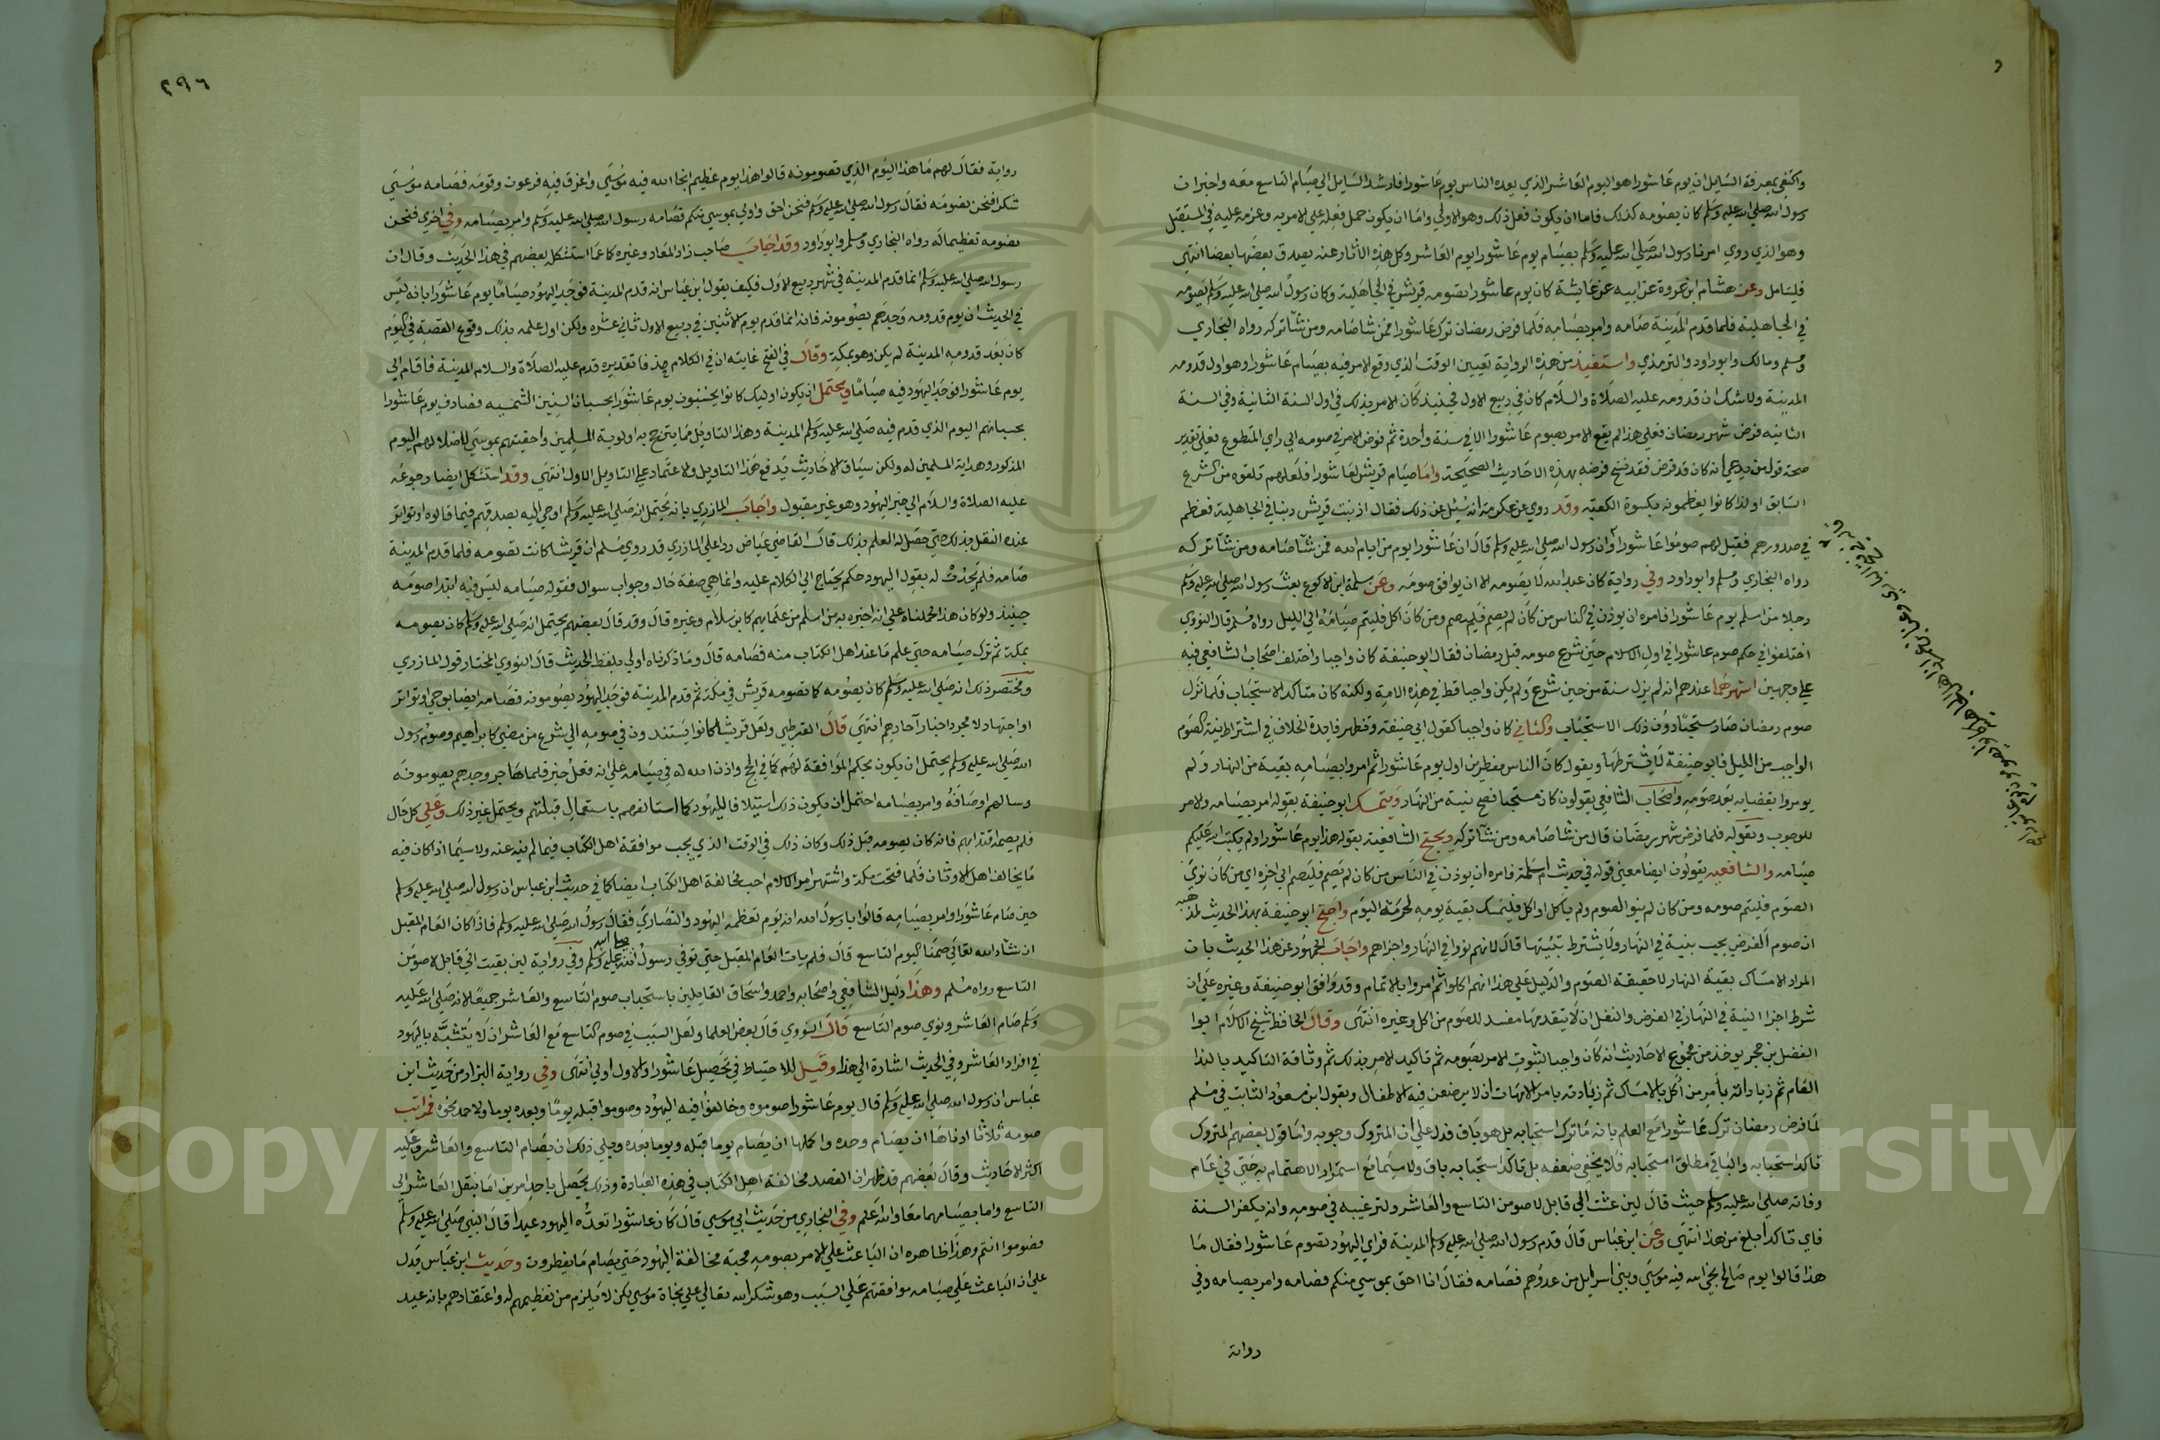 واكتفى بمعرفة السايل ان يوم عاشورا هو اليوم العاشر الذي يعده الناس يوم عاشورا فارشد السايل الي صيام التاسع معه واخبر ان
رسول الله صلي الله عليه وسلم كان يصومه كذلك فاما ان يكون فعل ذلك وهو الاولي واما ان يكون حمل فعله علي الامر به وعزمه عليه في المستقبل
وهو الذي روي امرنا رسول الله صلي الله عليه وسلم بصيام يوم عاشورا يوم العاشر وكل هذه الآثار عنه يصدق بعضها بعضا انتهي
فليتامل وعن هشام ابن عروة عن ابيه عن عايشة كان يوم عاشورا تصومه قريش في الجاهلية وكان رسول الله صلي الله عليه وسلم يصومه
في الجاهلية فلما قدم المدينة صامه وامر بصيامه فلما فرض رمضان ترك عاشورا فمن شا صامه ومن شا تركه رواه البخاري
ومسلم ومالك وابو داود والترمذي واستفيد من هذه الرواية تعيين الوقت الذي وقع الامر فيه بصيام عاشورا وهو اول قدومه
المدينة ولا شك ان قدومه عليه الصلاة والسلام كان في ربيع الاول فحينيذ كان الامر بذلك في اول السنة الثانية وفي السنة
الثانيه فرض شهر رمضان فعلي هذا لم يقع الامر بصوم عاشورا الا في سنة واحدة ثم فوض الامر في صومه الي راي المتطوع فعلي تقدير
صحة قول من يدعي انه كان قد فرض فقد نسخ فرضه بهذه الاحاديث الصحيحة واما صيام قريش لعاشورا فلعلهم تلقوه من الشرع
السابق او لذا كانوا يعظمونه بكسوة الكعبه وقد روي عن عكرمة انه سئل عن ذلك فقال اذنبت قريش ذنبا في الجاهلية فعظم
في صدورهم فقيل لهم صوموا عاشورا وان رسول الله صلي الله عليه وسلم قال ان عاشورا يوم من ايام الله فمن شا صامه ومن شا تركه
رواه البخاري ومسلم وابو داود وفي رواية كان عبد الله لا يصومه الا ان يوافق صومه وعن سلمة ابن الاكوع بعث رسول الله صلي الله عليه وسلم
رجلا من اسلم يوم عاشورا فامره ان يوذن في الناس من كان لم يصم فليصم ومن كان اكل فليتم صيامه الي الليل رواه مسلم قال النووي
اختلفوا في حكم صوم عاشورا في اول الاسلام حين شرع صومه قبل رمضان فقال ابو حنيفة كان واجبا واختلف اصحاب الشافعي فيه
علي وجهين اشهرهما عندهم انه لم يزل سنة من حين شرع ولم يكن واجبا قط في هذه الامة ولكنه كان متاكد الاستحباب فلما نزل
صوم رمضان صار مستحبا دون ذلك الاستحباب والثاني كان واجبا كقول ابي حنيفة وتظهر فايدة الخلاف في اشتراط نية الصوم
الواجب من الليل فابو حنيفة لا يشترطها ويقول كان الناس مفطرين اول يوم عاشورا ثم امروا بصيامه بنية من النهار ولم
يومروا بقضايه بعد صومه واصحاب الشافعي يقولون كان مستحبا فصح بنية من النهار ويتمسك ابو حنيفة بقوله امر بصيامه والامر
للوجوب وبقوله فلما فرض شهر رمضان قال من شا صامه ومن شا تركه ويحتج الشافعية بقوله هذا يوم عاشورا ولم يكتب الله عليكم
صيامه والشافعيه يقولون ايضا معني قوله في حديث ام سلمة فامره ان يوذن في الناس من كان لم يصم فليصم الي اخره اي من كان نوي
الصوم فليتم صومه ومن كان لم ينو الصوم ولم ياكل او اكل فليمسك بقية يومه لحرمة اليوم واحتج ابو حنيفة بهذا الحديث لمذهبه
ان صوم الفرض يجب بنية في النهار ولا يشترط تبييتها قال لانهم نووا في النهار واجزاهم واجاب الجمهور عن هذا الحديث بان
المراد الامساك بقية النهار لا حقيقة الصوم والدليل علي هذا انهم اكلوا ثم امروا بالاتمام وقد وافق ابو حنيفة وغيره علي ان
شرط اجزا النية في النهار في الفرض والنفل ان لا يتقدمها مفسد للصوم من اكل وغيره انتهي وقال الحافظ شيخ الاسلام ابوا
الفضل بن حجر يوخذ من مجموع الاحاديث انه كان واجبا لثبوت الامر بصومه ثم تاكيد الامر بذلك ثم وثاقة التاكيد بالندا
العام ثم زيادته بامر من اكل بالامساك ثم زيادته بامر الامهات ان لا يرضعن فيه الاطفال وبقول ابن مسعود الثابت في مسلم
لما فرض رمضان ترك عاشورا مع العلم بانه ما ترك استحبابه بل هو باق فدل علي ان المتروك وجوبه واما قول بعضهم المتروك
تاكد استحبابه والباقي مطلق استحبابه فلا يخفي ضعفه بل تاكد استحبابه باق ولا سيما مع استمرار الاهتمام به حتي في عام
وفاته صلي الله عليه وسلم حيث قال لين عشت الي قابل لاصومن التاسع والعاشر ولترغيبه في صومه وانه يكفر السنة
فاي تاكد ابلغ من هذا انتهي وعن ابن عباس قال قدم رسول الله صلي الله عليه وسلم المدينة فراي اليهود تصوم عاشورا فقال ما
هذا قالوا يوم صالح نجي الله فيه موسي وبني اسرايل من عدوهم فصامه فقال انا احق بموسي منكم فصامه وامر بصيامه وفي
رواية
٢٩٦
رواية فقال لهم ما هذا اليوم الذي تصومونه قالوا هذا يوم عظيم انجا الله فيه موسي واغرق فيه فرعون وقومه فصامه موسي
شكرا فنحن نصومه فقال رسول الله صلي الله عليه وسلم فنحن احق واولي بموسي منكم فصامه رسول الله صلي الله عليه وسلم وامر بصيامه وفي اخري فنحن
نصومه تعظيما له رواه البخاري ومسلم وابو داود وقد اجاب صاحب زاد المعاد وغيره كاعما استشكله بعضهم في هذا الحديث وقال ان
رسول الله صلي الله عليه وسلم انما قدم المدينة في شهر ربيع الاول فكيف يقول ابن عباس انه قدم المدينة فوجد اليهود صياما يوم عاشورا بانه ليس
في الحديث ان يوم قدومه وجدهم يصومونه فانه انما قدم يوم الاثنين في ربيع الاول ثاني عشره ولكن اول علمه بذلك وقوع القصة في اليوم
كان بعد قدومه المدينة لم يكن وهو بمكة وقال في الفتح غايته ان في الكلام حذفا تقديره قدم عليه الصلاة والسلام المدينة فاقام الي
يوم عاشورا فوجد اليهود فيه صياما ويحتمل ان يكون اوليك كانوا يحسبون يوم عاشورا بحساب السنين الشمسيه فصادف يوم عاشورا
بحسابهم اليوم الذي قدم فيه صلي الله عليه وسلم المدينة وهذا التاويل مما يترجح به اولوية المسلمين واحقيتهم بموسي لاضلالهم اليوم
المذكور وهداية المسلمين له ولكن سياق الاحاديث يدفع هذا التاويل والاعتماد علي التاويل الاول انتهي وقد استشكل ايضا رجوعه
عليه الصلاة والسلام الي خبر اليهود وهو غير مقبول واجاب المازري بانه يحتمل انه صلي الله عليه وسلم اوحي اليه بصدقهم فيما قالوه او تواتر
عنده النقل بذلك حتي حصل له العلم بذلك قال القاضي عياض ردا علي المازري قد روي مسلم ان قريشا كانت تصومه فلما قدم المدينة
صامه فلم يحدث له بقول اليهود حكم يحتاج الي الكلام عليه وانما هي صفة حال وجواب سوال فقوله صيامه ليس فيه ابتدا صومه
حينيذ ولو كان هذا لحملناه علي انه اخبره به من اسلم من علمايهم كابن سلام وغيره قال وقد قال بعضهم يحتمل انه صلي الله عليه وسلم كان يصومه
بمكة ثم ترك صيامه حتي علم ما عند اهل الكتاب منه فصامه قال وما ذكرناه اولي بلفظ الحديث قال النووي المختار قول المازري
ومختصر ذلك انه صلي الله عليه وسلم كان يصومه كما تصومه قريش في مكة ثم قدم المدينة فوجد اليهود يصومونه فصامه ايضا بوحي او تواتر
او اجتهاد لا مجرد اخبار آحادهم انتهي قال القرطبي ولعل قريشا كانوا يستندون في صومه الي شرع من مضي كابراهيم وصوم رسول
الله صلي الله عليه وسلم يحتمل ان يكون بحكم الموافقة لهم كما في الحج واذن الله له في صيامه علي انه فعل خير فلما هاجر وجدهم يصومونه
وسالهم وصامه وامر بصيامه احتمل ان يكون ذلك استيلافا لليهود كما استالفهم باستقبال قبلتهم ويحتمل غير ذلك وعلي كل حال
فلم يصمه اقتدا بهم فانه كان يصومه قبل ذلك وكان ذلك في الوقت الذي يحب موافقة اهل الكتاب فيما لم ينه عنه ولا سيما اذا كان فيه
ما يخالف اهل الاوثان فلما فتحت مكة واشتهر امر الاسلام احب مخالفة اهل الكتاب ايضا كما في حديث ابن عباس ان رسول الله صلي الله عليه وسلم
حين صام عاشورا وامر بصيامه قالوا يا رسول الله انه يوم تعظمه اليهود والنصاري فقال رسول الله صلي الله عليه وسلم فاذا كان العام المقبل
ان شاء الله تعالي صمنا اليوم التاسع قال فلم يات العام المقبل حتي توفي رسول الله صلي الله عليه وسلم وفي رواية لين بقيت الي قابل لاصومن
التاسع رواه مسلم وهذا دليل الشافعي واصحابه واحمد واسحاق القايلين باستحباب صوم التاسع والعاشر جميعا لانه صلي الله عليه
وسلم صام العاشر ونوي صوم التاسع قال النووي قال بعض العلما ولعل السبب في صوم التاسع مع العاشر ان لا يتشبه باليهود
في افراد العاشر وفي الحديث اشارة الي هذا وقيل للاحتياط في تحصيل عاشورا والاول اولي انتهي وفي رواية البزار من حديث ابن
عباس ان رسول الله صلي الله عليه وسلم قال يوم عاشورا صوموه وخالفوا فيه اليهود وصوموا قبله يوما وبعده يوما ولاحمد نحوه فمراتب
صومه ثلاثا ادناها ان يصام وحده واكملها ان يصام يوما قبله ويوما بعده ويلي ذلك ان يصام التاسع والعاشر وعليه
اكثر الاحاديث وقال بعضهم قد ظهر ان القصد مخالفة اهل الكتاب في هذه العبادة وذلك يحصل باحد امرين اما بنقل العاشر الي
التاسع واما بصيامهما معا والله اعلم وفي البخاري من حديث ابي موسي قال كان عاشورا تعده اليهود عيدا قال النبي صلي الله عليه وسلم
فصوموا انتم وهذا ظاهره ان الباعث علي الامر بصومه محبة مخالفة اليهود حتي يصام ما يفطرون وحديث ابن عباس يدل
علي ان الباعث علي صيامه موافقتهم علي السبب وهو شكر الله تعالي علي نجاة موسي لكن لا يلزم من تعظيمهم له واعتقادهم بانه عيد
Copyright © King Saud University
1957